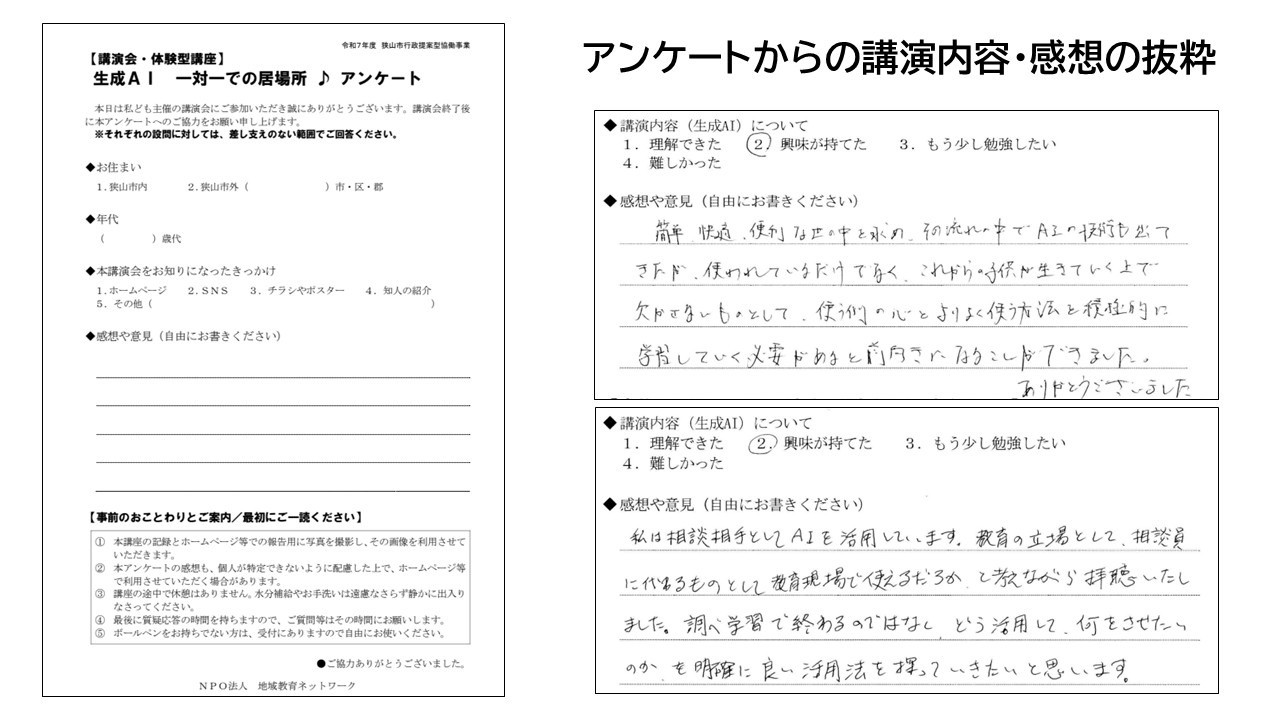 アンケートからの講演内容・感想の抜粋
令和7年度 狭山市行政提案型協働事業
【講演会・体験型講座】
生成AI 一対一での居場所 ♪ アンケート
本日は私ども主催の講演会にご参加いただき誠にありがとうございます。講演会終了後
に本アンケートへのご協力をお願い申し上げます。
※それぞれの設問に対しては、差し支えのない範囲でご回答ください。
◆お住まい
1.狭山市内 2.狭山市外( )市・区・郡
◆年代
( )歳代
◆本講演会をお知りになったきっかけ
1.ホームページ 2.SNS 3.チラシやポスター 4.知人の紹介
5.その他( )
◆感想や意見(自由にお書きください)
【事前のおことわりとご案内/最初にご一読ください】
① 本講座の記録とホームページ等での報告用に写真を撮影し、その画像を利用させて
いただきます。
② 本アンケートの感想も、個人が特定できないように配慮した上で、ホームページ等
で利用させていただく場合があります。
③ 講座の途中で休憩はありません。水分補給やお手洗いは遠慮なさらず静かに出入り
なさってください。
④ 最後に質疑応答の時間を持ちますので、ご質問等はその時間にお願いします。
⑤ ボールペンをお持ちでない方は、受付にありますので自由にお使いください。
●ご協力ありがとうございました。
NPO法人 地域教育ネットワーク
◆講演内容(生成AI)について
1.理解できた 2.興味が持てた 3.もう少し勉強したい
4.難しかった
◆感想や意見(自由にお書きください)
簡単、快適、便利な世の中を求め、その流れの中でAIの技術も出て
きたが、使われているだけでなく、これからの子供が生きていく上で
欠かせないものとして、使う側の心とよりよく使う方法を積極的に
学習していく必要があると前向きになることができました。
ありがとうございました
◆講演内容(生成AI)について
1.理解できた 2.興味が持てた 3.もう少し勉強したい
4.難しかった
◆感想や意見(自由にお書きください)
私は相談相手としてAIを活用しています。教育の立場として、相談員
に代わるものとして教育現場で使えるだろうか、と考えながら拝聴いたし
ました。調べ学習で終わるのではなく、どう活用して、何をさせたい
のか、を明確に良い活用法を探っていきたいと思います。